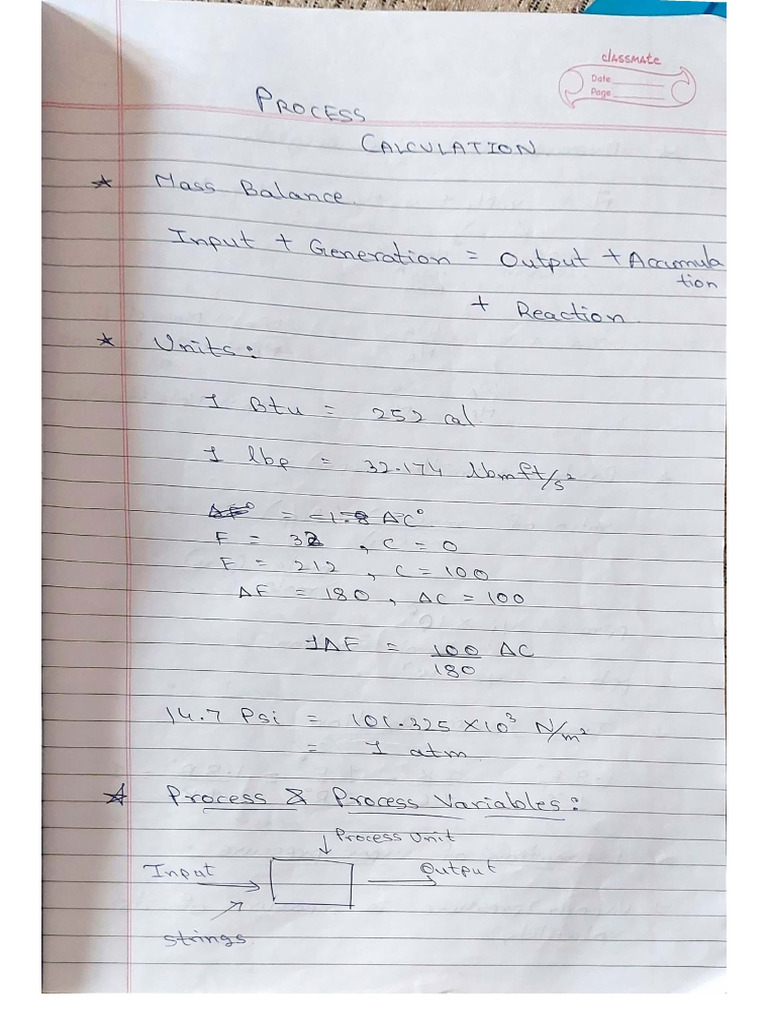 classmate
Date
Page
PROCESS
CALCULATION
* Mass Balance.
Input + Generation = Output + Accumula
tion
+ Reaction
* Units:
1 Btu = 252 cal
1 lbf = 32.174 lbmft/s²
ΔF° = -1.8 ΔC°
F = 32 , C = 0
F = 212 , C = 100
ΔF = 180 , ΔC = 100
1ΔF = 100/180 ΔC
14.7 Psi = 101.325 ×10³ N/m²
= 1 atm
* Process & Process Variables:
↓ Process Unit
Input → Output →
strings